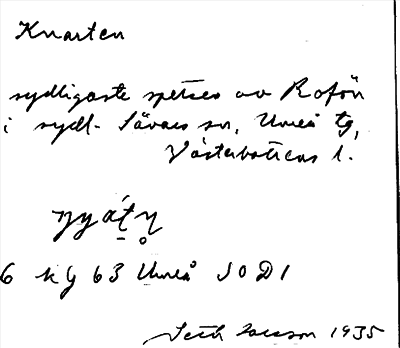 Knarten
sydligaste spetsen av Rofön
i sydl. Sävars sn, Umeå tg,
Västerbottens l.
6 kg 63 Umeå SO D1
1935